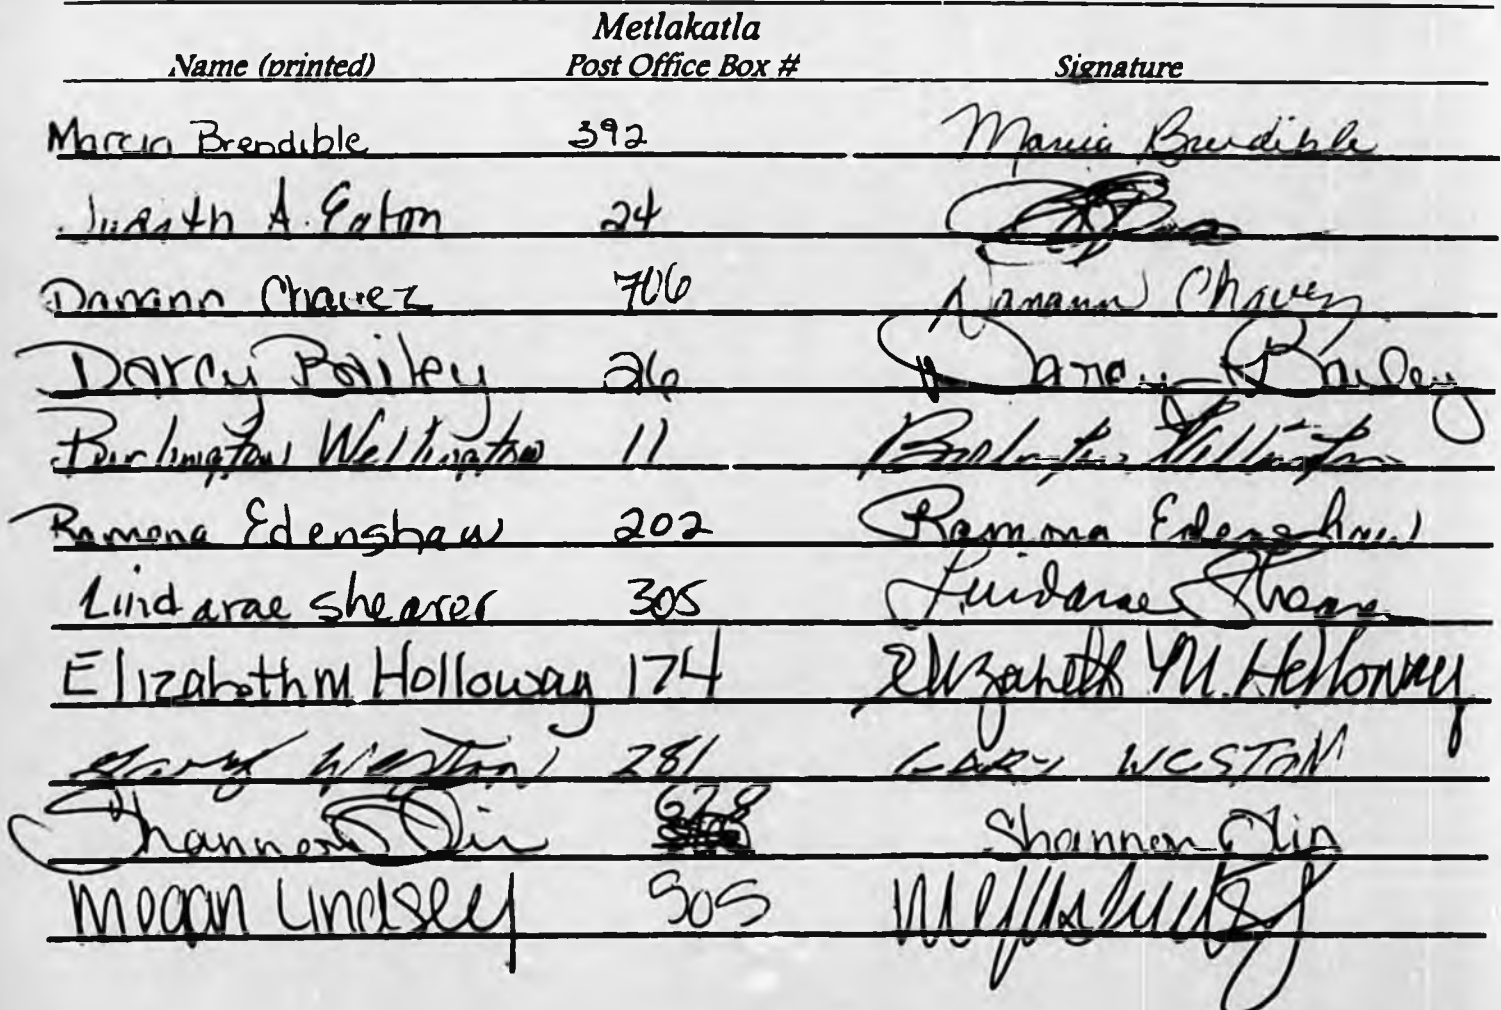 Metlakatla
Name (printed) Post Office Box # Signature
Marcia Brendible 392 Marcia Brendible
Judith A. Eaton 24
Danann Chavez 706 Danann Chavez
Darcy Bailey 26 Darcy Bailey
Burlington Wellington 11 Burlington Wellington
Ramona Edenshaw 202 Ramona Edenshaw
Lindarae shearer 305 Lindarae Shearer
Elizabeth M Holloway 174 Elizabeth M. Holloway
Gary Weston 281 GARY WESTON
Shannon Olin 628 Shannon Olin
Megan Lindsey 505